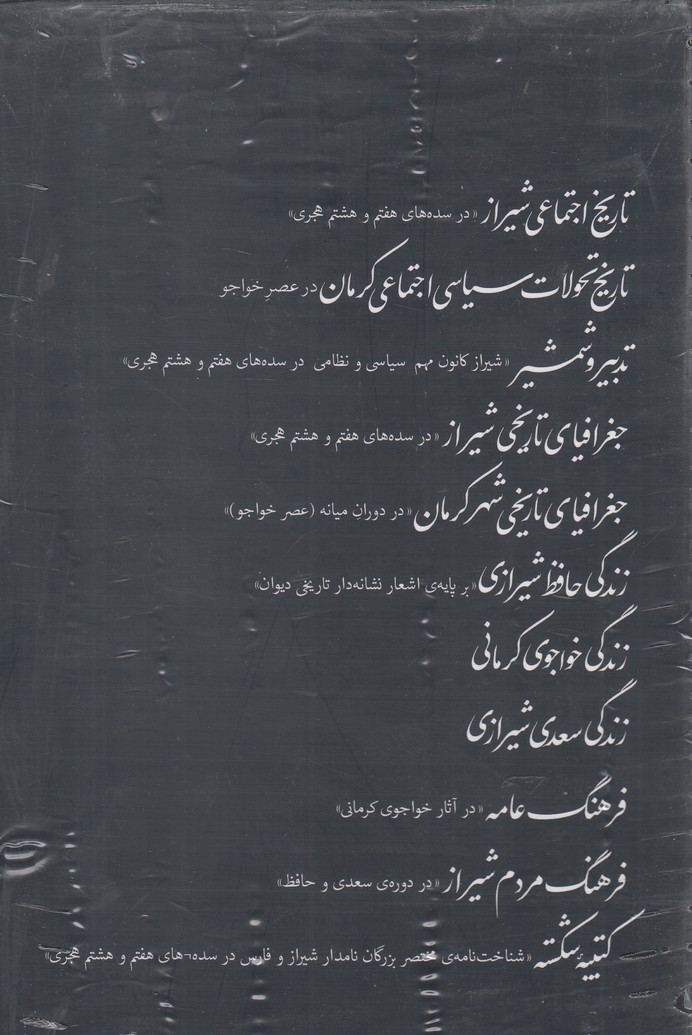 تاریخ اجتماعی شیراز «در سده‌های هفتم و هشتم هجری»
تاریخ تحولات سیاسی اجتماعی کرمان در عصرِ خواجو
تدبیر و شمشیر «شیراز کانون مهم سیاسی و نظامی در سده‌های هفتم و هشتم هجری»
جغرافیای تاریخی شیراز «در سده‌های هفتم و هشتم هجری»
جغرافیای تاریخی شهر کرمان «در دورانِ میانه (عصر خواجو)»
زندگی حافظ شیرازی «بر پایه‌ی اشعار نشانه‌دار تاریخی دیوان»
زندگی خواجوی کرمانی
زندگی سعدی شیرازی
فرهنگ عامه «در آثار خواجوی کرمانی»
فرهنگ مردم شیراز «در دوره‌ی سعدی و حافظ»
کتیبهٔ شکسته «شناخت‌نامه‌ی مختصر بزرگان نامدار شیراز و فارس در سده¬های هفتم و هشتم هجری»